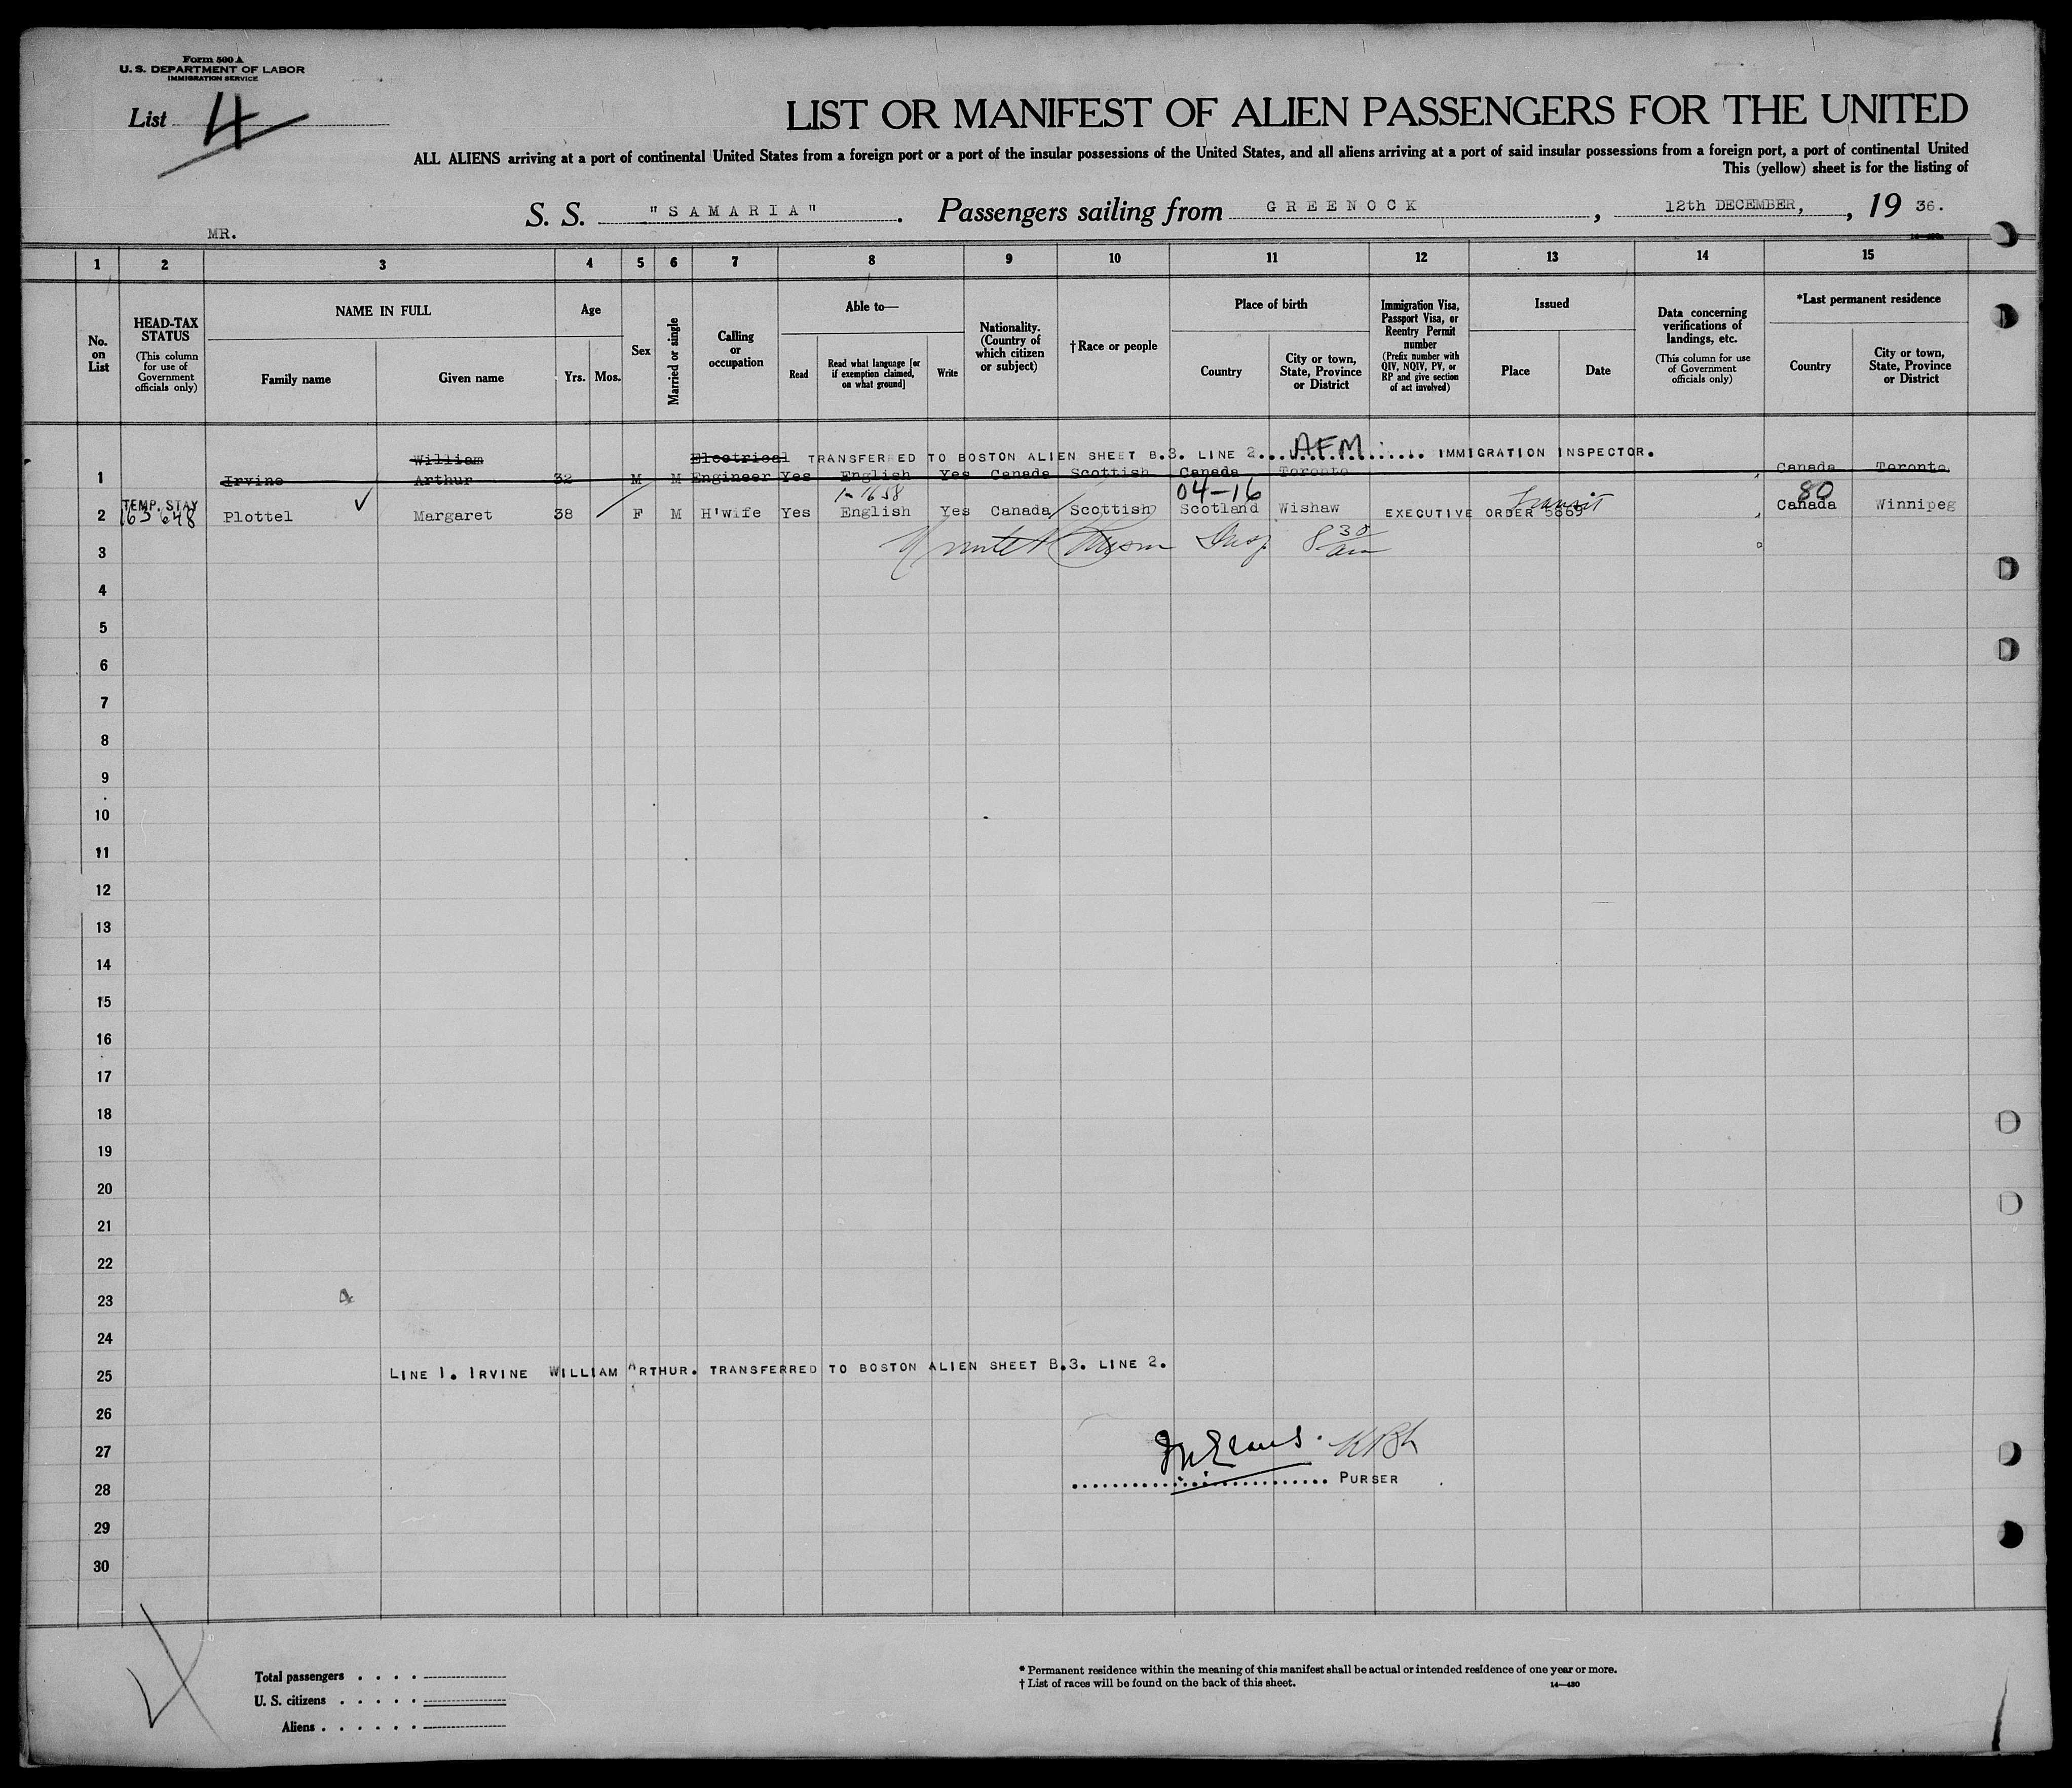 Form 500 A
U. S. DEPARTMENT OF LABOR
IMMIGRATION SERVICE
List 4
LIST OR MANIFEST OF ALIEN PASSENGERS FOR THE UNITED
ALL ALIENS arriving at a port of continental United States from a foreign port or a port of the insular possessions of the United States, and all aliens arriving at a port of said insular possessions from a foreign port, a port of continental United
This (yellow) sheet is for the listing of
S. S. "SAMARIA". Passengers sailing from GREENOCK, 12th DECEMBER, , 19 36.
MR.
1 2 3 4 5 6 7 8 9 10 11 12 13 14 15
No. on List
HEAD-TAX STATUS
(This column for use of Government officials only)
NAME IN FULL
Family name
Given name
Age
Yrs. Mos.
Sex
Married or single
Calling or occupation
Able to—
Read
Read what language [or if exemption claimed, on what ground]
Write
Nationality. (Country of which citizen or subject)
†Race or people
Place of birth
Country
City or town, State, Province or District
Immigration Visa, Passport Visa, or Reentry Permit number
(Prefix number with QIV, NQIV, PV, or RP and give section of act involved)
Issued
Place
Date
Data concerning verifications of landings, etc.
(This column for use of Government officials only)
*Last permanent residence
Country
City or town, State, Province or District
William Electrical TRANSFERRED TO BOSTON ALIEN SHEET B.3. LINE 2. A.F.M. IMMIGRATION INSPECTOR.
1 Irvine Arthur 32 M M Engineer Yes English Yes Canada Scottish Canada Toronto Canada Toronto
TEMP. STAY 1-1658 04-16 Transit 80
2 163648 Plottel Margaret 38 F M H'wife Yes English Yes Canada Scottish Scotland Wishaw EXECUTIVE ORDER 5869 Canada Winnipeg
3 Insp 8 30 am
4
5
6
7
8
9
10
11
12
13
14
15
16
17
18
19
20
21
22
23 4
24
25 LINE 1. IRVINE WILLIAM ARTHUR. TRANSFERRED TO BOSTON ALIEN SHEET B.3. LINE 2.
26
27
28 PURSER
29
30
Total passengers
U. S. citizens
Aliens
* Permanent residence within the meaning of this manifest shall be actual or intended residence of one year or more.
† List of races will be found on the back of this sheet.
14—430